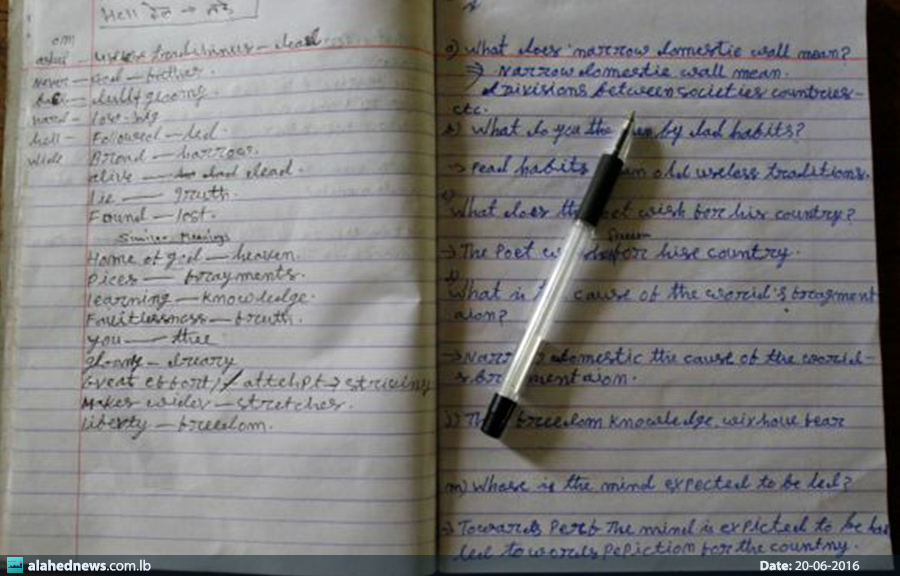 Hell
om
useless traditions - dead
never - God - father.
hard - lost-big
hell - Followed - led.
wide Broad - narrow.
alive - dead.
Lie - truth.
Found - lost.
Similar Meanings
Home of god - heaven.
Pices - bragments.
learning - knowledge.
Faultlessness - truth.
you - thee
gloomy - dreary
Great effort / attempt → striving
Makes wider - stretches.
liberty - breedom.
a) What does narrow domestic wall mean?
⇒ Narrow domestic wall mean.
divisions between societies countries-
etc.
b) What do you the by dad habits?
→ Dead habits old useless traditions.
c)
What does the Poet wish bor his country?
dream
→ The Poet for hise country.
What is the cause of the world's bragment
aion?
→ Narrow domestic the cause of the world-
s bragmentaion.
j) The breedom knowledge, wixhout bear
m) Whose is the mind expected to be led?
→ Towards Perb the mind is expicted to be ha
led to words pepiction for the countny.
alahednews.com.lb
Date: 20-06-2016